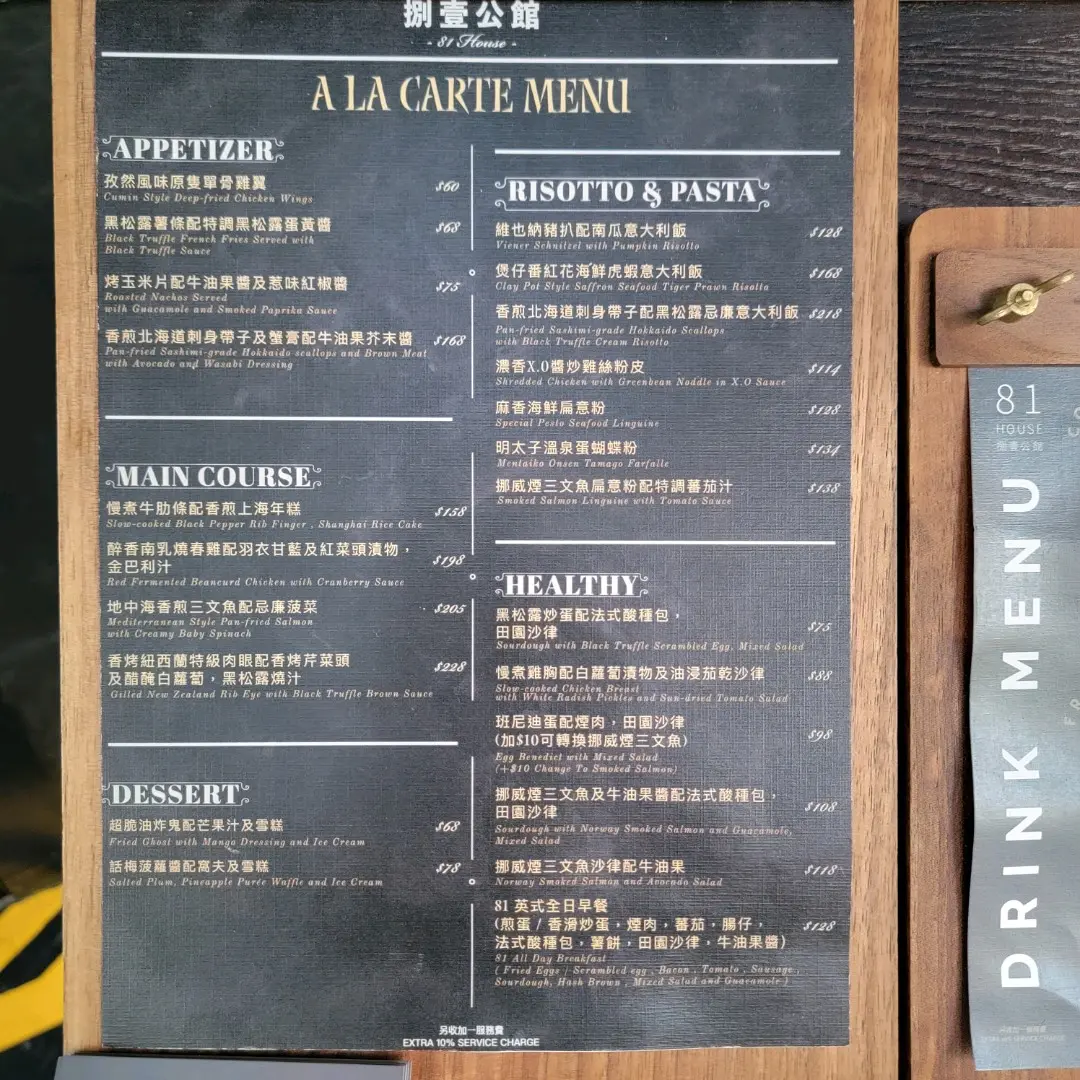 捌壹公館
- 81 House -
A LA CARTE MENU
APPETIZER
孜然風味原隻單骨雞翼 $60
Cumin Style Deep-fried Chicken Wings
黑松露薯條配特調黑松露蛋黃醬 $68
Black Truffle French Fries Served with
Black Truffle Sauce
烤玉米片配牛油果醬及惹味紅椒醬 $75
Roasted Nachos Served
with Guacamole and Smoked Paprika Sauce
香煎北海道刺身帶子及蟹膏配牛油果芥末醬 $168
Pan-fried Sashimi-grade Hokkaido scallops and Brown Meat
with Avocado and Wasabi Dressing
MAIN COURSE
慢煮牛肋條配香煎上海年糕 $158
Slow-cooked Black Pepper Rib Finger , Shanghai Rice Cake
醉香南乳燒春雞配羽衣甘藍及紅菜頭漬物，
金巴利汁 $198
Red Fermented Beancurd Chicken with Cranberry Sauce
地中海香煎三文魚配忌廉菠菜 $205
Mediterranean Style Pan-fried Salmon
with Creamy Baby Spinach
香烤紐西蘭特級肉眼配香烤芹菜頭
及醋醃白蘿蔔，黑松露燒汁 $228
Gilled New Zealand Rib Eye with Black Truffle Brown Sauce
DESSERT
超脆油炸鬼配芒果汁及雪糕 $68
Fried Ghost with Mango Dressing and Ice Cream
話梅菠蘿醬配窩夫及雪糕 $78
Salted Plum, Pineapple Purée Waffle and Ice Cream
RISOTTO & PASTA
維也納豬扒配南瓜意大利飯 $128
Viener Schnitzel with Pumpkin Risotto
煲仔番紅花海鮮虎蝦意大利飯 $168
Clay Pot Style Saffron Seafood Tiger Prawn Risotto
香煎北海道刺身帶子配黑松露忌廉意大利飯 $218
Pan-fried Sashimi-grade Hokkaido Scallops
with Black Truffle Cream Risotto
濃香X.O醬炒雞絲粉皮 $114
Shredded Chicken with Greenbean Noddle in X.O Sauce
麻香海鮮扁意粉 $128
Special Pesto Seafood Linguine
明太子溫泉蛋蝴蝶粉 $134
Mentaiko Onsen Tamago Farfalle
挪威煙三文魚扁意粉配特調蕃茄汁 $138
Smoked Salmon Linguine with Tomato Sauce
HEALTHY
黑松露炒蛋配法式酸種包，
田園沙律 $75
Sourdough with Black Truffle Scrambled Egg, Mixed Salad
慢煮雞胸配白蘿蔔漬物及油浸茄乾沙律 $88
Slow-cooked Chicken Breast
with White Radish Pickles and Sun-dried Tomato Salad
班尼迪蛋配煙肉，田園沙律
(加$10可轉換挪威煙三文魚) $98
Egg Benedict with Mixed Salad
(+$10 Change To Smoked Salmon)
挪威煙三文魚及牛油果醬配法式酸種包，
田園沙律 $108
Sourdough with Norway Smoked Salmon and Guacamole,
Mixed Salad
挪威煙三文魚沙律配牛油果 $118
Norway Smoked Salmon and Avocado Salad
81 英式全日早餐
(煎蛋 / 香滑炒蛋，煙肉，蕃茄，腸仔， $128
法式酸種包，薯餅，田園沙律，牛油果醬)
81 All Day Breakfast
( Fried Eggs / Scrambled egg , Bacon , Tomato , Sausage ,
Sourdough, Hash Brown , Mixed Salad and Guacamole )
另收加一服務費
EXTRA 10% SERVICE CHARGE
81
HOUSE
捌壹公館
DRINK MENU